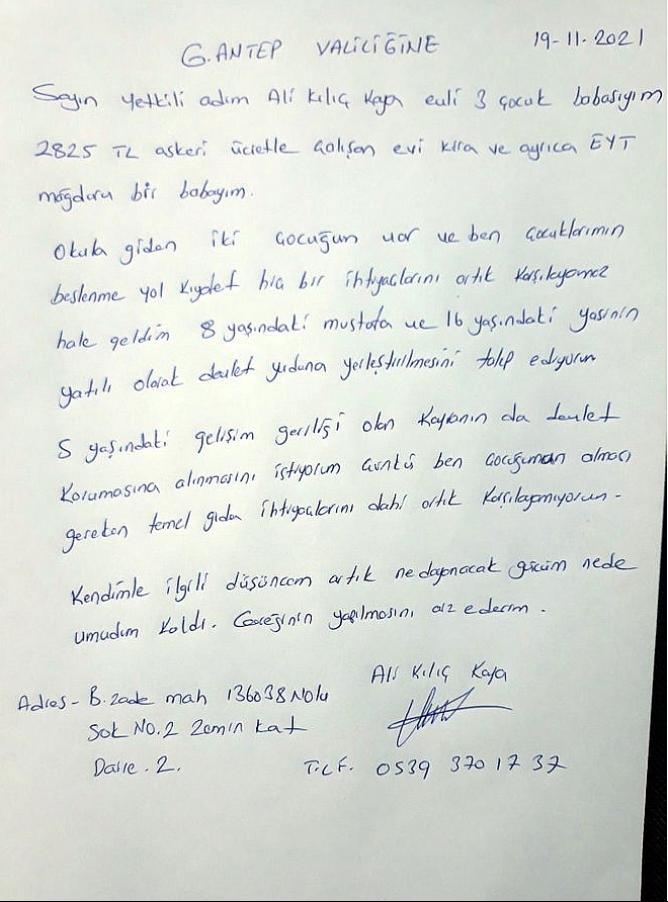 G.ANTEP VALİLİĞİNE 19-11-2021
Sayın yetkili adım Ali Kılıç Kaya evli 3 çocuk babasıyım
2825 TL askeri ücretle çalışan evi kira ve ayrıca EYT
mağduru bir babayım.
Okula giden iki çocuğum var ve ben çocuklarımın
beslenme yol kıyafet hiç bir ihtiyaçlarını artık karşılayamaz
hale geldim 8 yaşındaki mustafa ve 16 yaşındaki yasinin
yatılı olarak devlet yurduna yerleştirilmesini talep ediyorum
5 yaşındaki gelişim geriliği olan Kaylanın da devlet
korumasına alınmasını istiyorum çünkü ben çocuğumun alması
gereken temel gıda ihtiyaçlarını dahi artık karşılayamıyorum -
Kendimle ilgili düşüncem artık ne dayanacak gücüm nede
umudum kaldı. Gereğinin yapılmasını arz ederim.
Ali Kılıç Kaya
Adres - B.zade mah 136038 Nolu
Sok NO.2 zemin kat
Daire. 2.
TLF. 0539 370 17 37